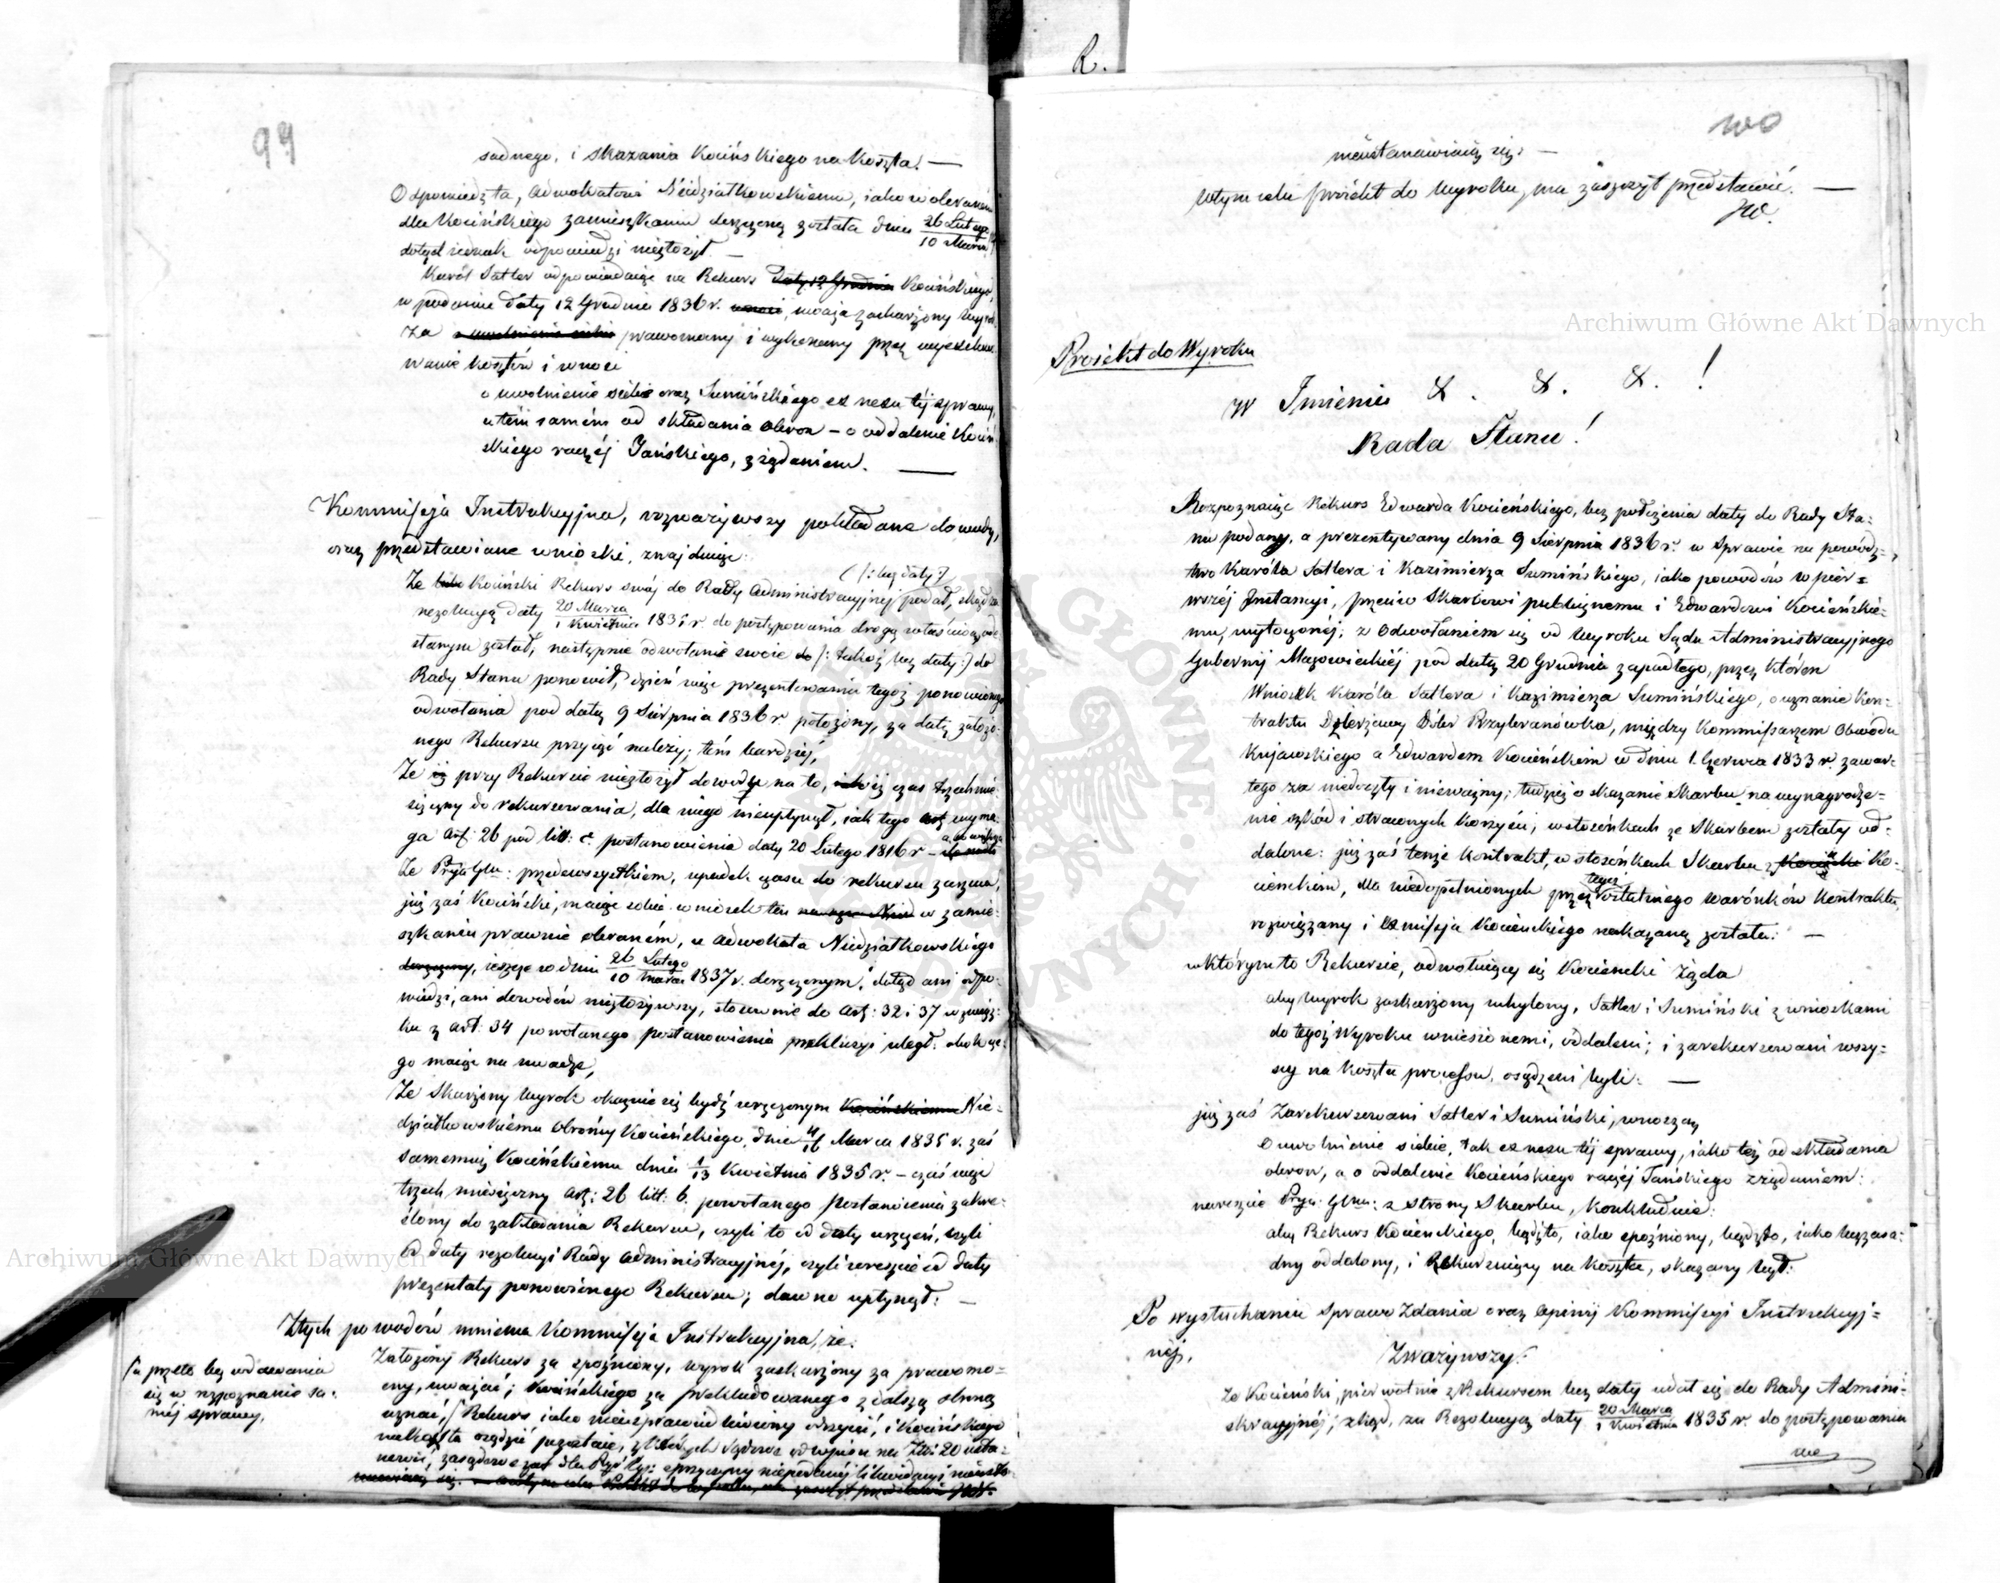 R.
99
sadnego, i skazania Kocińskiego na koszta! —
Odpowiedź ta, Adwokatowi Niedziałkowskiemu, jako w obranem
dla Kocińskiego zamieszkaniu doręczoną została dnia 26 Lutego / 10 Marca
dotąd jednak odpowiedzi niezłożył. —
Karól Satler odpowiadając na Rekurs daty 12 Grudnia Kocińskiego,
w podaniu daty 12 Grudnia 1836 r. uważa zaskarżony wyrok
za prawomocny i wykonany przez wyexekwo
wanie kosztów i wnosi
o uwolnienie siebie oraz Sumińskiego ex nexu téj sprawy,
a tém samém od składania obron – o oddalenie Kociń
skiego raczéj Jańskiego, z żądaniem. —
Kommissyja Instrukcyjna, rozważywszy pokładane dowody,
oraz przedstawiane wnioski, znajduje:
(/: bez daty :/)
Że lubo Kociński Rekurs swój do Rady Administracyjnéj podał, skąd za
rezolucyą daty 20 Marca / 1 Kwietnia 1835 r. do postępowania drogą właściwą ode
słanym został, następnie odwołanie swoie do /: także bez daty :/ do
Rady Stanu ponowił, dzień więc prezentowania tegoż ponowionego
odwołania pod datą 9 Sierpnia 1836 r. położony, za datę założo
nego Rekursu przyjąć należy; tém bardziéj,
Że iż przy Rekursie niezłożył dowodu na to, iż czas trzechmie
sięczny do rekursowania, dla niego nieupłynął, jak tego wyma
ga Art: 26 pod litt: c. postanowienia daty 20 Lutego 1816 r –
Że Prga Glna: przedewszystkiem, upadek czasu do rekursu zarzuca,
już zaś Kociński, maiąc sobie wniosek ten w zamie-
szkaniu prawnie obraném, u Adwokata Niedziałkowskiego
doręczony, ieszcze w dniu 26 Lutego / 10 Marca 1837 r. doręczonym, dotąd ani odpo-
wiedzi, ani dowodów niezłożywszy, stosownie do Art: 32 i 37 w związ-
ku z Art: 34 powołanego postanowienia prekluzyi uległ. obok cze-
go maiąc na uwadze,
Że Skarżony wyrok okazuie się bydź wręczonym Kocińskiemu Nie-
działkowskiemu obrońcy Kocieńskiego, dnia 4/16 Marca 1835 r. zaś
samemuż Kocińskiemu dnia 1/13 Kwietnia 1835 r. – czas więc
trzech miesięczny Art: 26 litt: b. powołanego postanowienia zakre-
ślony do zakładania Rekursu, czyli to od daty wręczeń, czyli
od daty rezolucyi Rady Administracyjnéj, czyli wreszcie od daty
prezentaty ponowionego Rekursu; dawno upłynął: —
Z tych powodów mniema Kommissyja Instrukcyjna, że:
Założony Rekurs za spóźniony, wyrok zaskarżony za prawomo-
cny, uważać; Kocińskiego za prekludowanego z dalszą obroną
uznać, / Rekurs iako nieusprawiedliwiony odrzucić, i Kocińskiego
na koszta osądzić pozostaie, z których Sądowe odwpisu na Złp 20 usta-
nowić, zasądzone zaś dla Prgi Glnéj: z przyczyny niepodanéj likwidacyi nieusta-
nawiaią się. — w tym celu Projekt do wyroku, ma zaszczyt przedstawić.
/a przeto bez wdawania
się w rozpoznanie sa-
méj sprawy,
100
nieustanawiaią się. —
W tym celu projekt do wyroku, ma zaszczyt przedstawić. —
Projekt do Wyroku
W Imieniu &. &. &. !
Rada Stanu!
Rozpoznaiąc Rekurs Edwarda Kocieńskiego, bez położenia daty do Rady Sta-
nu podany, a prezentywany dnia 9 Sierpnia 1836 r. w Sprawie na powódz-
two Karóla Satlera i Kazimierza Sumińskiego, jako powodów w pier-
wszéj Instancyi, przeciw Skarbowi publicznemu i Edwardowi Kocieńskie-
mu, wytoczonéj; z Odwołaniem się od wyroku Sądu Administracyjnego
Gubernij Mazowieckiéj pod datą 20 Grudnia zapadłego, przez któren
Wniosek Karóla Satlera i Kazimierza Sumińskiego, o uznanie Kon-
traktu Dzierżawy Dóbr Przybranówka, między Kommissarzem Obwodu
Kujawskiego a Edwardem Kocieńskim w dniu 1. Czerwca 1833 r. zawar-
tego za niedoszły i nieważny; tudzież o skazanie Skarbu na wynagrodze-
nie szkód i straconych korzyści, w stosónkach ze Skarbem zostały od-
dalone: już zaś tenże kontrakt, w stosónkach Skarbu z Kociński Ko-
cieńskim, dla niedopełnionych przez tegoż ostatniego warónków kontraktu,
rozwiązany i exmissyja Kocieńskiego nakazaną została: —
w którymto Rekursie, odwołuiący się Kocieński żąda
aby wyrok zaskarżony uchylony, Satler i Sumiński z wnioskami
do tegoż wyroku wniesionemi, oddaleni; i zarekursowani wszy-
scy na koszta processu, osądzeni byli: —
już zaś Zarekursowani Satler i Sumiński, wnoszą
o uwolnienie siebie, tak ex nexu téj sprawy, jako też od składania
obron, a o oddalenie Kocieńskiego raczéj Jańskiego z żądaniem:
nareszcie Prga: Glna: z strony Skarbu, konkluduie:
aby Rekurs Kocieńskiego, bądźto, iako spóźniony, bądźto, iako bezzasa-
dny oddalony, i Rekursuiący na koszta, skazany był:
Po wysłuchaniu Sprawozdania oraz Opinij Kommissyi Instrukcyj-
néj,
Zważywszy:
Że Kocieński, pierwotnie z Rekursem bez daty udał się do Rady Admini-
stracyjnéj, zkąd, za Rezolucyą daty 20 Marca / 1 Kwietnia 1835 r. do postępowania
Archiwum Główne Akt Dawnych
Archiwum Główne Akt Dawnych